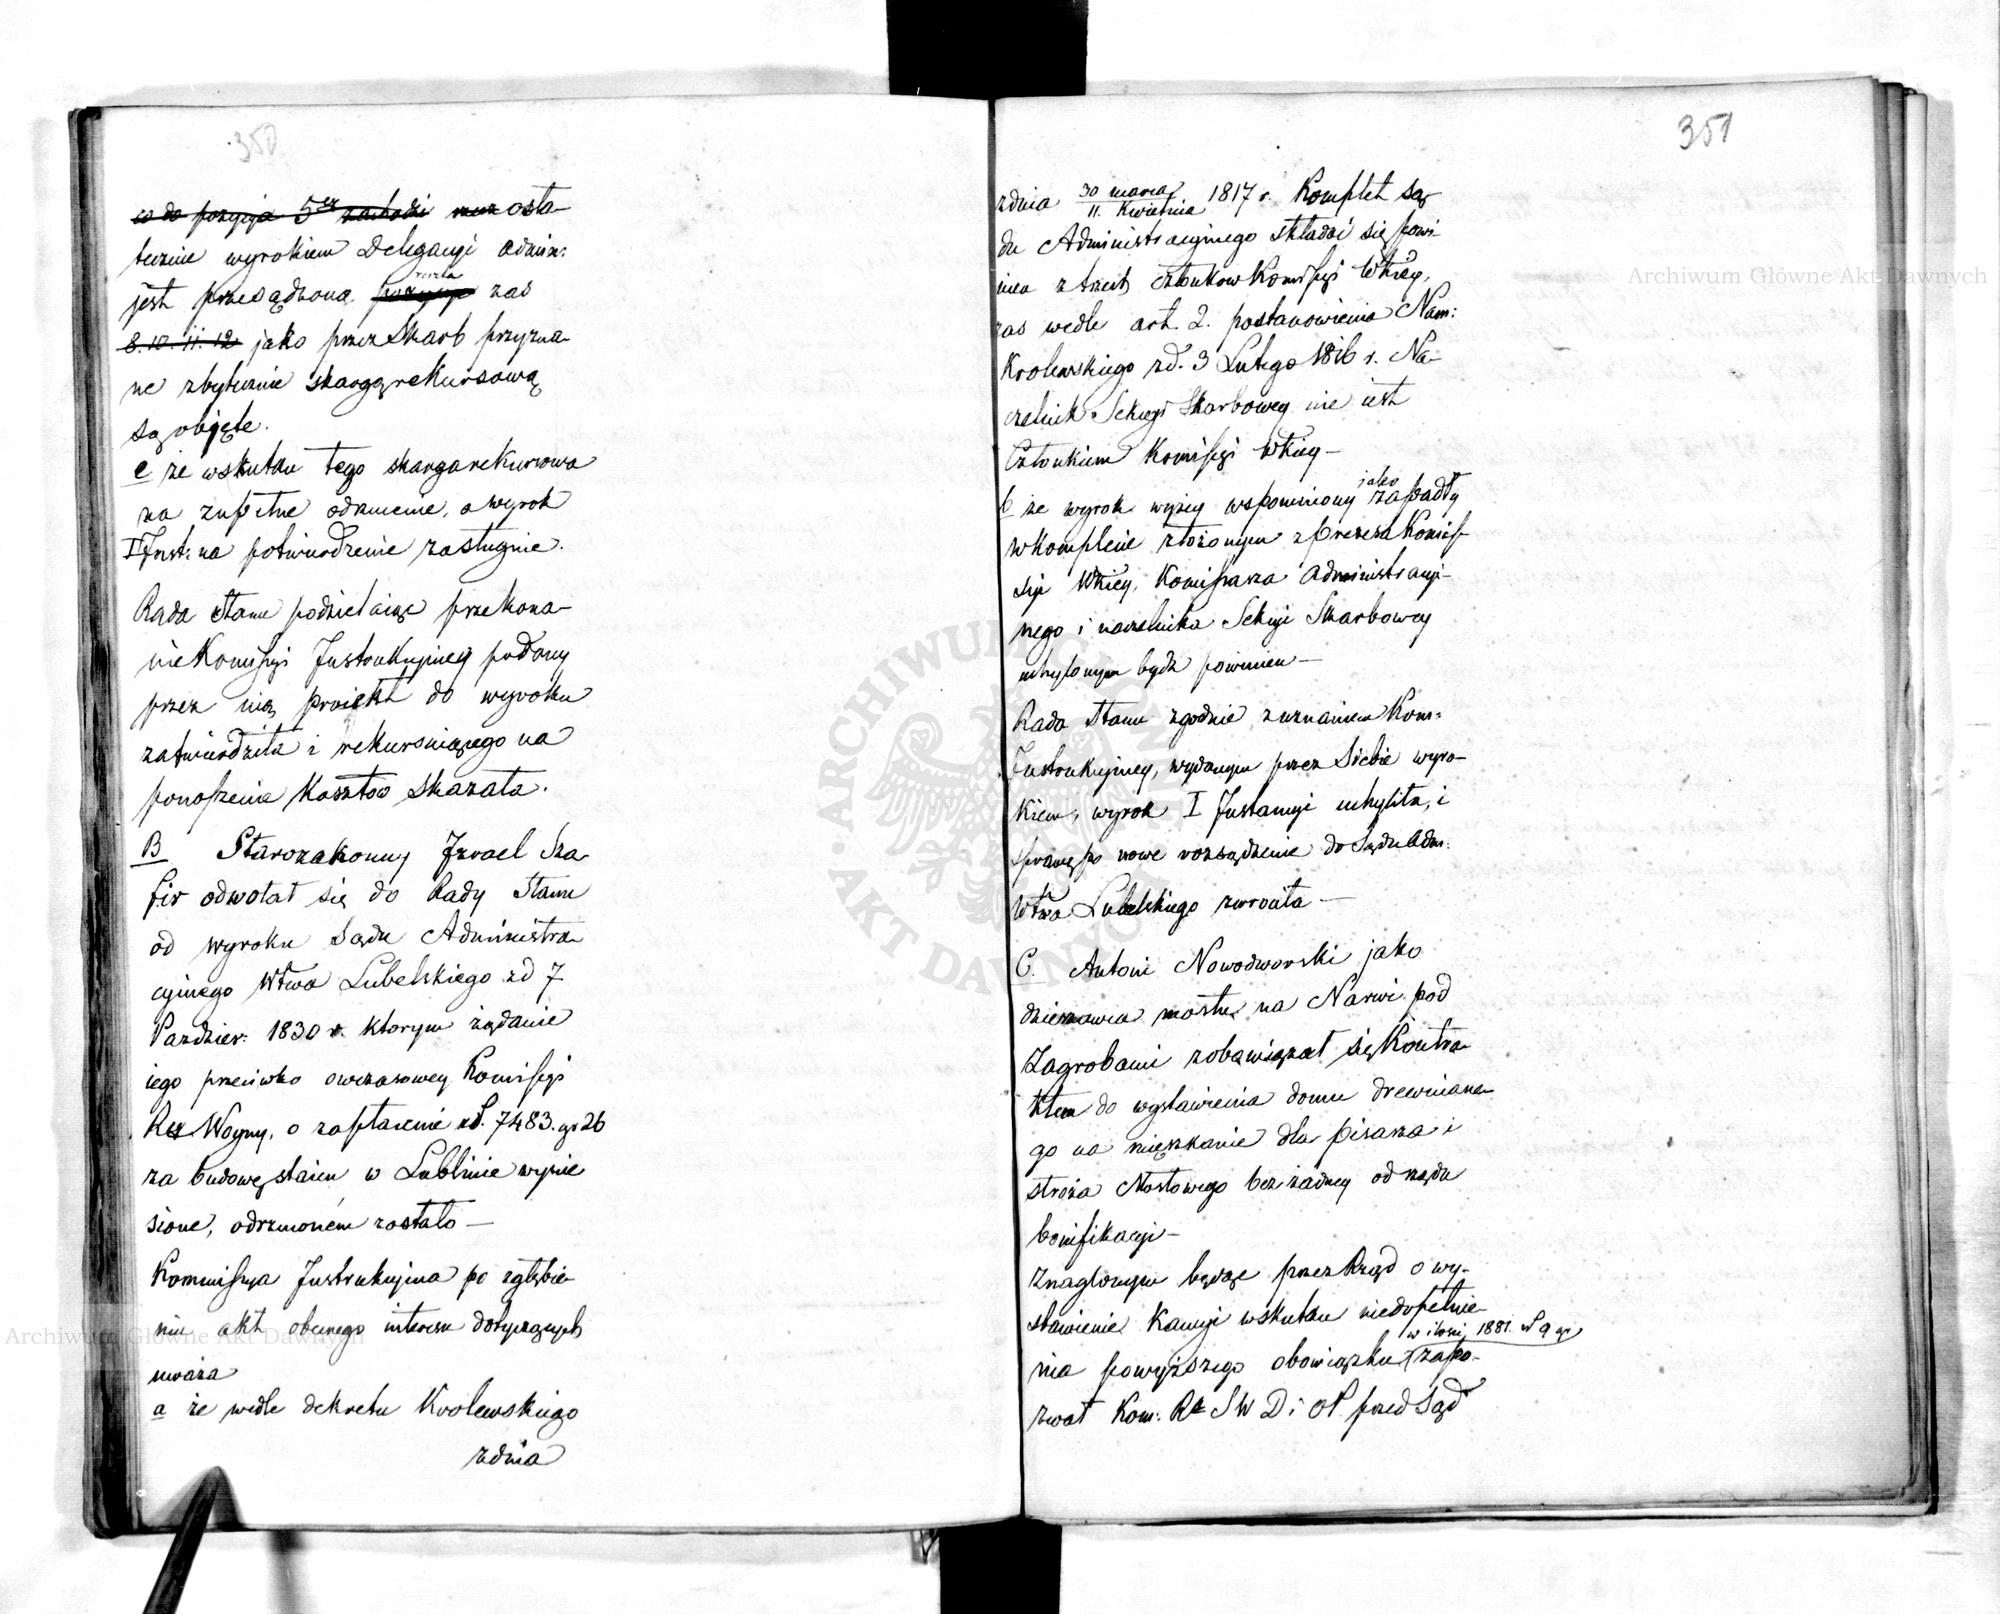 350
co do pozycja 5ta zachodzi osta-
tecznie wyrokiem Delegacyi admin:
jest przesądzona pozycye zas
8. 10. 11. 12 jako przez Skarb przyzna-
ne zbytecznie skargą rekursową
są objęte.
c że wskutku tego skarga rekursowa
na zupełne odrzucenie, a wyrok
I Inst: na potwierdzenie zasługuie.
Rada Stanu podzielaiąc przekona-
nie Komissyi Instrukcyiney podany
przez nią proiekt do wyroku
zatwierdziła i rekursuiącego na
ponoszenia Kosztów Skazała.
B Starozakonny Izrael Sza-
fir odwołał się do Rady Stanu
od wyroku Sądu Administra-
cyinego Wtwa Lubelskiego z d 7
Pazdzier: 1830 r. ktorym żądanie
iego przeciwko owczasowey Komissyi
Rz Woyny, o zapłacenie zł. 7483. gr 26
za budowę staien w Lublinie wynie
sione, odrzuconem zostało —
Kommissya Instrukcyina po zgłębie-
niu akt obecnego interesu dotyczących
uważa
a że wedle dekretu Krolewskiego
zdnia
351
zdnia 30 marca / 11. Kwietnia 1817 r. Komplet Są-
du Administracyinego składać się powi-
nien z trzech członków Komissyi Wtkiey,
zas wedle art. 2. postanowienia Nam:
Krolewskiego z d. 3 Lutego 1816 r. Na-
czelnik Sekcyi Skarbowey nie iest
Członkiem Komissyi Wtkiey —
b że wyrok wyżey wspomniony jako zapadły
w komplecie złożonym z Prezesa Komis-
syi Wtkiey, Komissarza Administracyi-
nego i naczelnika Sekcyi Skarbowey
uchylonym bydź powinien —
Rada Stanu zgodnie z uznaniem Kom:
Instrukcyiney, wydanym przez Siebie wyro-
kiem, wyrok I Instancyi uchyliła, i
sprawę po nowe rozsądzenie do Sądu Adm:
Wtwa Lubelskiego zwróciła —
C. Antoni Nowodworski jako
dzierzawca mostu na Narwi pod
Zagrobami zobowiązał się Kontra-
ktem do wystawienia domu drewniane-
go na mięszkanie dla pisarza i
stroża Mostowego bez żadney od rządu
bonifikacyi —
Znaglonym będąc przez Rząd o wy-
stawienie Kaucyi wskutku niedopełnie-
w ilości 1881 zł 9 gr
nia powyższego obowiązku zapo-
zwał Kom: Rz S W D i OP. przed Sąd
Archiwum Główne Akt Dawnych
Archiwum Główne Akt Dawnych
ARCHIWUM GŁÓWNE AKT DAWNYCH